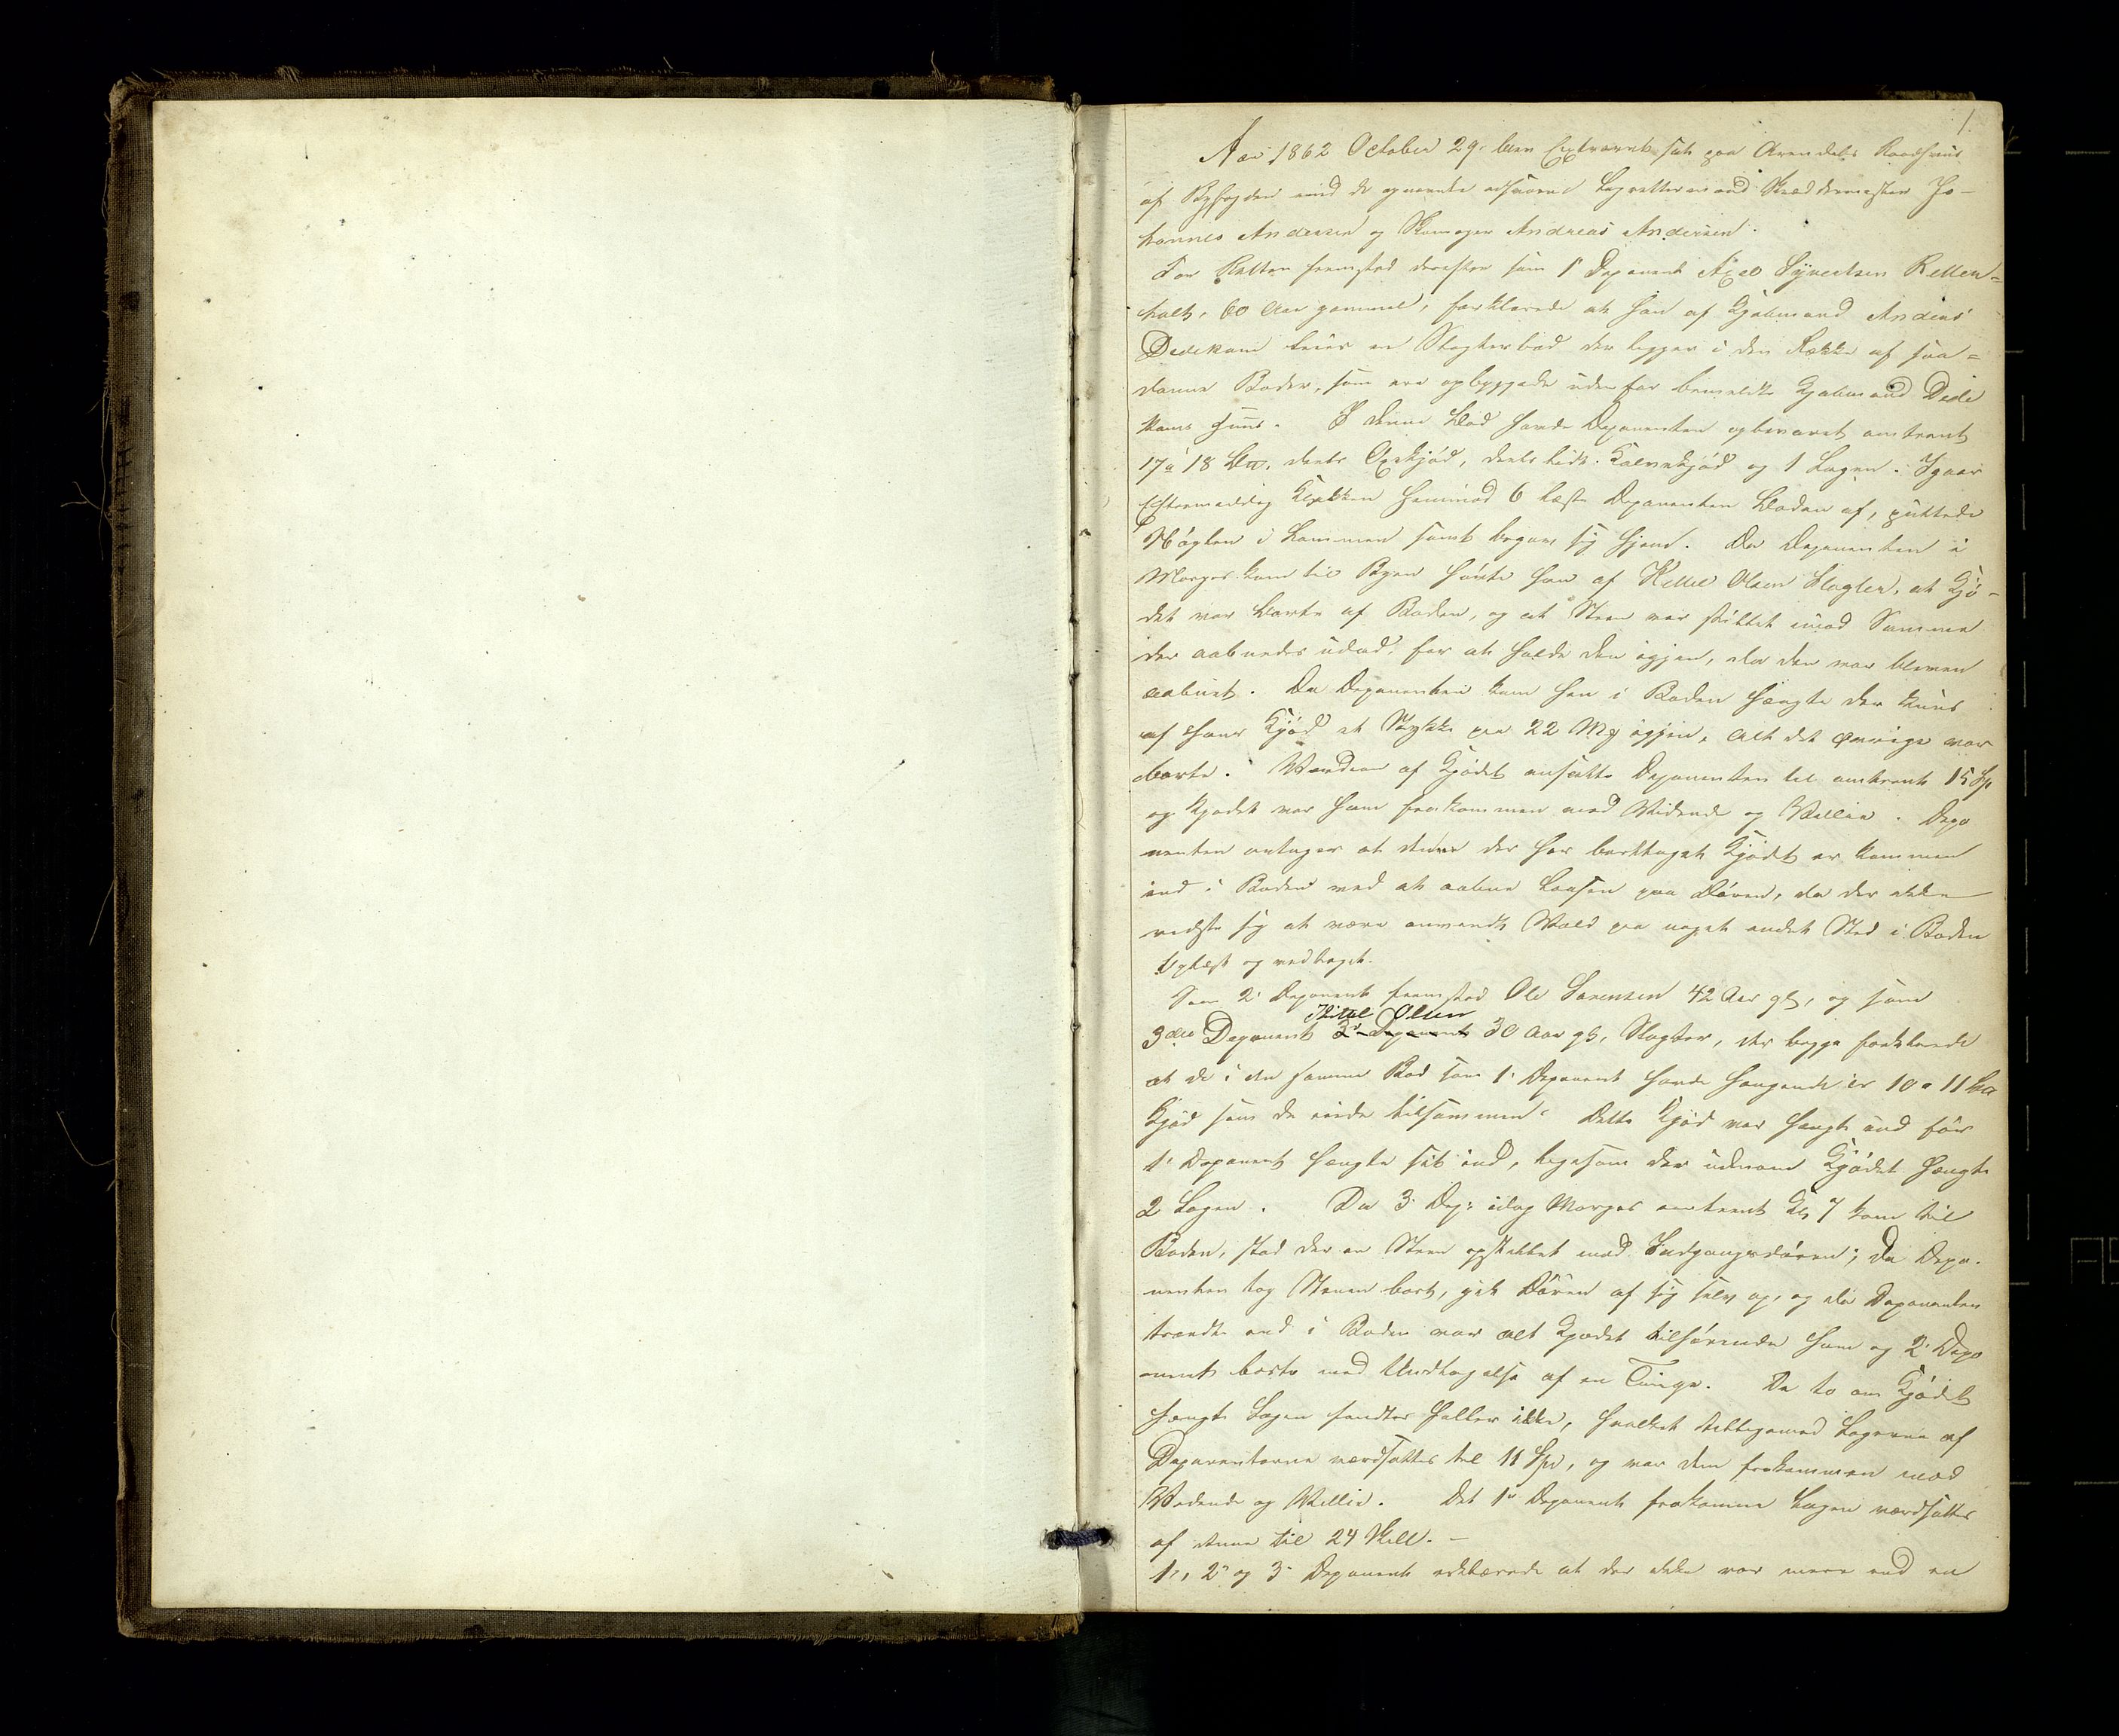 1.
Aar 1862 October 29. blev Extraret sat paa Arendals Raadhuus
af Byfogden med de opnævnte edsvorne Lagrettesmænd Skræddermester Jo-
hannes Andersen og Skomager Andreas Andersen.
For Retten fremstod derefter som 1' Deponent Axel Syvertsen Retten=
holt, 60 Aar gammel, forklarede at han af Kjøbmand Andreas
Dedekam leier en Slagterbod der ligger i den Række af saa=
danne Boder, som ere opbyggede udenfor bemeldte Kjøbmand Dede
kams Huus. I denne Bod havde Deponenten opbevaret omtrent
17 à 18 deels Oxekjød, deels lidt Kalvekjød og 1 Lagen. Igaar
Eftermiddag Klokken henimod 6 læste Deponenten Boden af, puttede
Nøglen i Lommen samt begav sig hjem. Da Deponenten i
Morges kom til Byen hørte han af Kittel Olsen Slagter, at Kjø-
det var borte af Boden, og at Steen var stillet imod Samme
der aabnedes udad, for at holde den igjen, da den var bleven
aabnet. Da Deponenten kom hen i Boden hængte der kuns
af hans Kjød et Stykke paa 22 Mk igjen, alt det øvrige var
borte. Værdien af Kjødet ansatte Deponenten til omtrent 15 Sp
og Kjødet var ham frakommen mod Vidende og Villie. Depo
nenten antager at den der har borttaget Kjødet er kommen
ind i Boden ved at aabne Laasen paa Døren, da der ikke
viste sig at være anvendt Vold paa noget andet Sted i Boden
Oplæst og vedtaget.
Som 2' Deponent fremstod Ole Sørensen 42 Aar gl, og som
Kittel Olsen
3die Deponent 30 Aar gl, Slagter, der begge forklarede
at de i den samme Bod som 1' Deponent havde hængende 10 a 11
Kjød som de eiede tilsammen. Dette Kjød var hængt ind før
1' Deponent hængte sit ind, ligesom der udenom Kjødet hængte
2 Lagen. Da 3' Dep: idag Morges omtrent Kl 7 kom til
Boden, stod der en Steen opstillet mod Indgangsdøren; da Depo-
nenten tog Stenen bort, gik Døren af sig selv op, og da Deponenten
traadte ind i Boden var alt Kjødet tilhørende ham og 2' Depo
nent borte med Undtagelse af en Tunge. De to om Kjødet
hængte Lagen fandtes heller ikke, hvilket tilligemed Lagenene af
Deponenterne værdsattes til 11 Spd, og var dem frakommen mod
Vidende og Villie. Det 1' Deponent frakomne Lagen værdsattes
af denne til 24 Skill. -
1', 2' og 3' Deponent erklærede at der ikke var mere end en